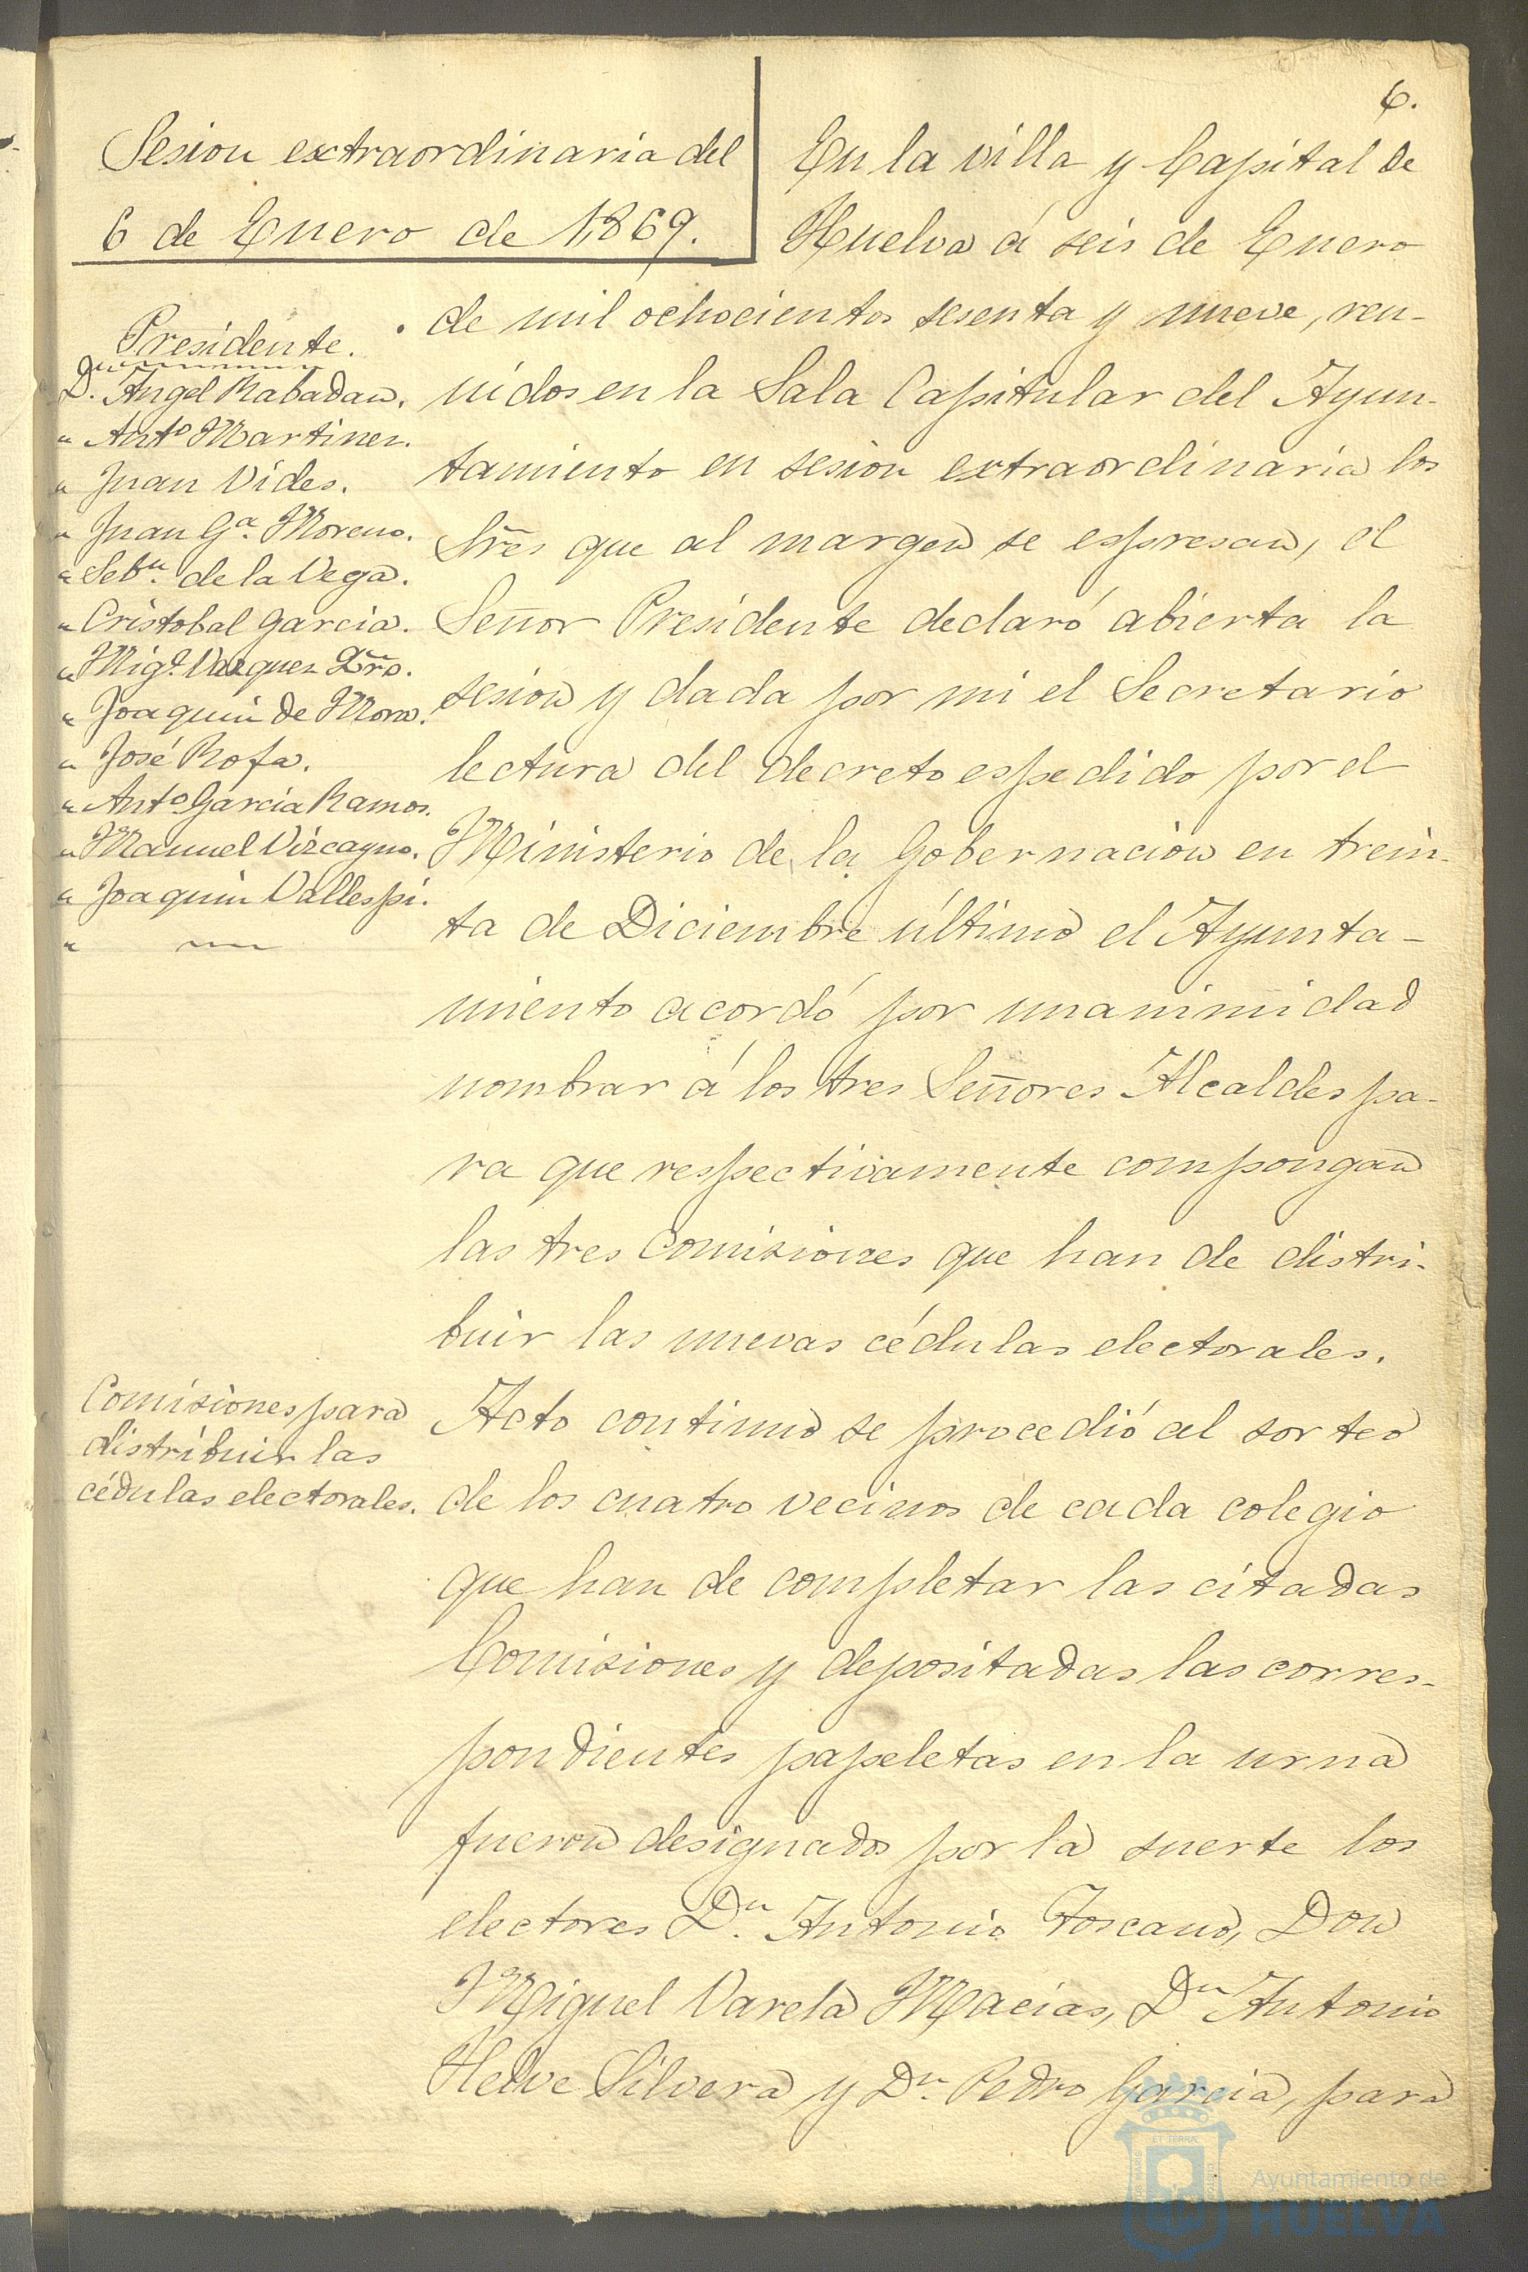 6.
Sesion extraordinaria del
6 de Enero de 1,869.
Presidente.
Dn. Angel Rabadan.
" Anto Martinez.
" Juan Vides.
" Juan Ga. Moreno.
" Sebn. de la Vega.
" Cristobal Garcia.
" Migl. Vazquez
" Joaquin de Mora.
" José Rofa.
" Anto Garcia Ramos.
" Manuel Vizcayno.
" Joaquin Vallespi.
"
En la villa y Capital de
Huelva á seis de Enero
de mil ochocientos sesenta y nueve, reu-
nidos en la Sala Capitular del Ayun-
tamiento en sesion extraordinaria los
Sres que al margen se espresan, el
Señor Presidente declaró abierta la
sesion y dada por mi el Secretario
lectura del decreto espedido por el
Ministerio de la Gobernacion en trein-
ta de Diciembre último el Ayunta-
miento acordó por unanimidad
nombrar á los tres Señores Alcaldes pa-
ra que respectivamente compongan
las tres Comisiones que han de distri-
buir las nuevas cédulas electorales.
Comisiones para
distribuir las
cédulas electorales.
Acto continuo se procedió al sorteo
de los cuatro vecinos de cada colegio
que han de completar las citadas
Comisiones y depositadas las corres-
pondientes papeletas en la urna
fueron designados por la suerte los
electores Dn. Antonio Toscano, Don
Miguel Varela Macias, Dn Antonio
Helve Silvera y Dn. Pedro Garcia, para
Ayuntamiento de
HUELVA